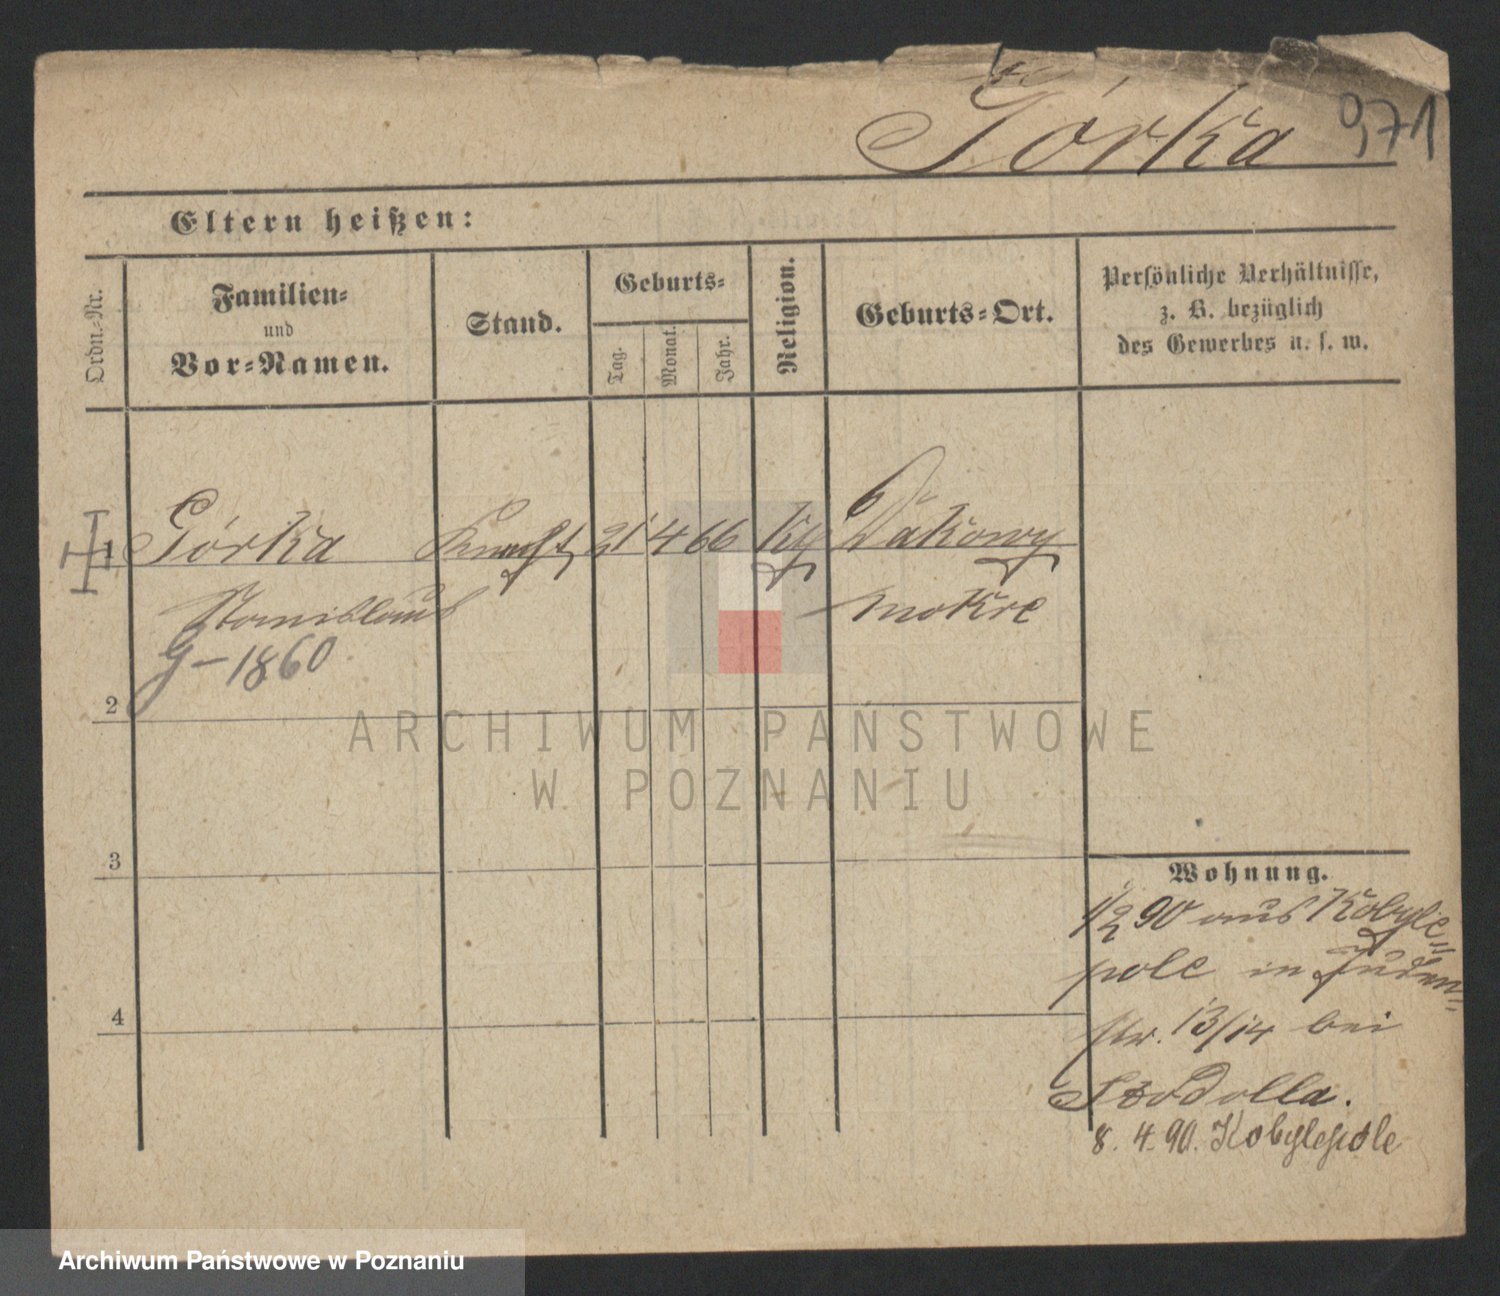 Górka 971
Eltern heißen:
Ordn.-Nr.
Familien-
und
Vor-Namen.
Stand.
Geburts-
Tag.
Monat.
Jahr.
Religion.
Geburts-Ort.
Persönliche Verhältnisse,
z. B. bezüglich
des Gewerbes u. s. w.
1 Górka Knecht 21 4 66 kth Dakowy
Stanislaus mokre
g-1860
2
3
4
Wohnung.
1/2 90 aus Kobyle=
pole in Juden=
str. 13/14 bei
8. 4. 90. Kobylepole
ARCHIWUM PAŃSTWOWE
W POZNANIU
Archiwum Państwowe w Poznaniu